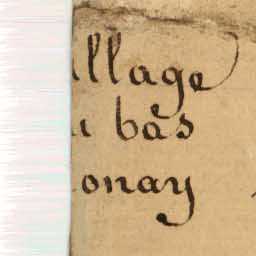 llage
bas
onay